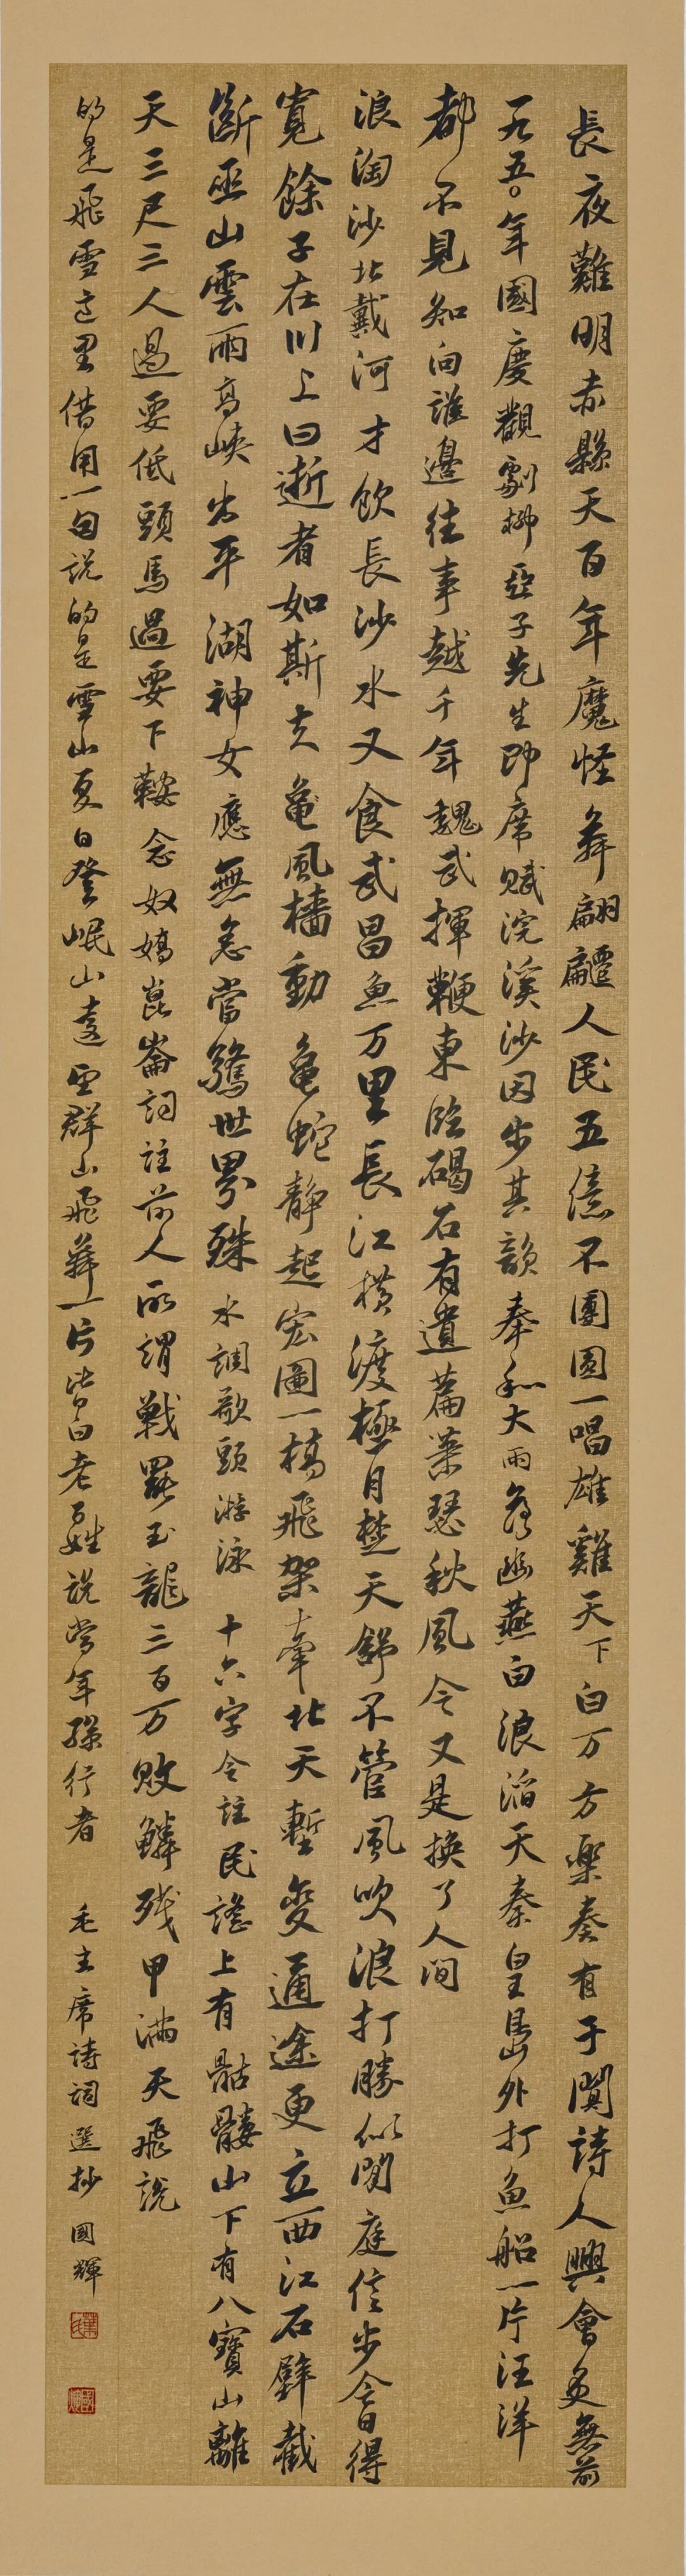 長夜難明赤縣天百年魔怪舞翩躚人民五億不團圓一唱雄雞天下白万方樂奏有于闐詩人興會更無前
一九五〇年國慶觀劇柳亞子先生即席賦浣溪沙因步其韻奉和大雨落幽燕白浪滔天秦皇島外打魚船一片汪洋
都不見知向誰邊往事越千年魏武揮鞭東臨碣石有遺篇蕭瑟秋風今又是換了人間
浪淘沙北戴河才飲長沙水又食武昌魚万里長江橫渡極目楚天舒不管風吹浪打勝似閒庭信步今日得
寬餘子在川上曰逝者如斯夫風檣動龜蛇靜起宏圖一橋飛架牽北天塹變通途更立西江石壁截
斷巫山雲雨高峽出平湖神女應無恙當驚世界殊水調歌頭游泳十六字令註民謠上有骷髏山下有八寶山離
天三尺三人過要低頭馬過要下鞍念奴嬌崑崙詞註前人所謂戰罷玉龍三百万敗鱗殘甲滿天飛說
的是飛雪這里借用一句說的是雪山夏日登岷山遠望群山飛舞一片皆白老百姓說當年孫行者
毛主席詩詞選抄國輝